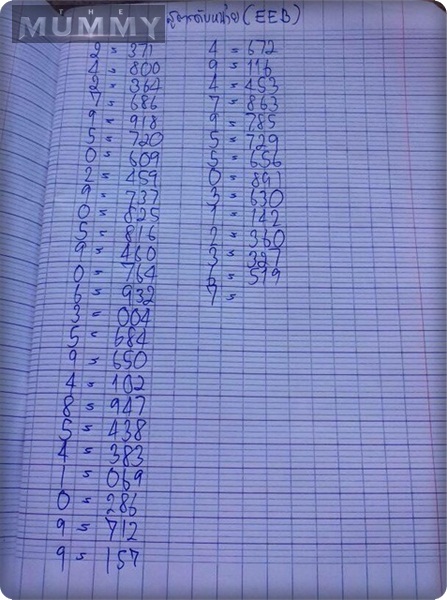 THE
MUMMY
(EEB)
2 = 371
4 = 800
2 = 364
7 = 686
9 = 918
5 = 720
0 = 609
2 = 459
9 = 737
0 = 825
5 = 816
9 = 460
0 = 764
6 = 932
3 = 004
5 = 684
9 = 650
4 = 102
8 = 947
5 = 438
4 = 383
1 = 069
0 = 286
9 = 712
9 = 157
4 = 672
9 = 116
4 = 453
7 = 863
9 = 785
5 = 729
5 = 656
0 = 891
3 = 630
1 = 142
2 = 360
3 = 327
6 = 519
7 =